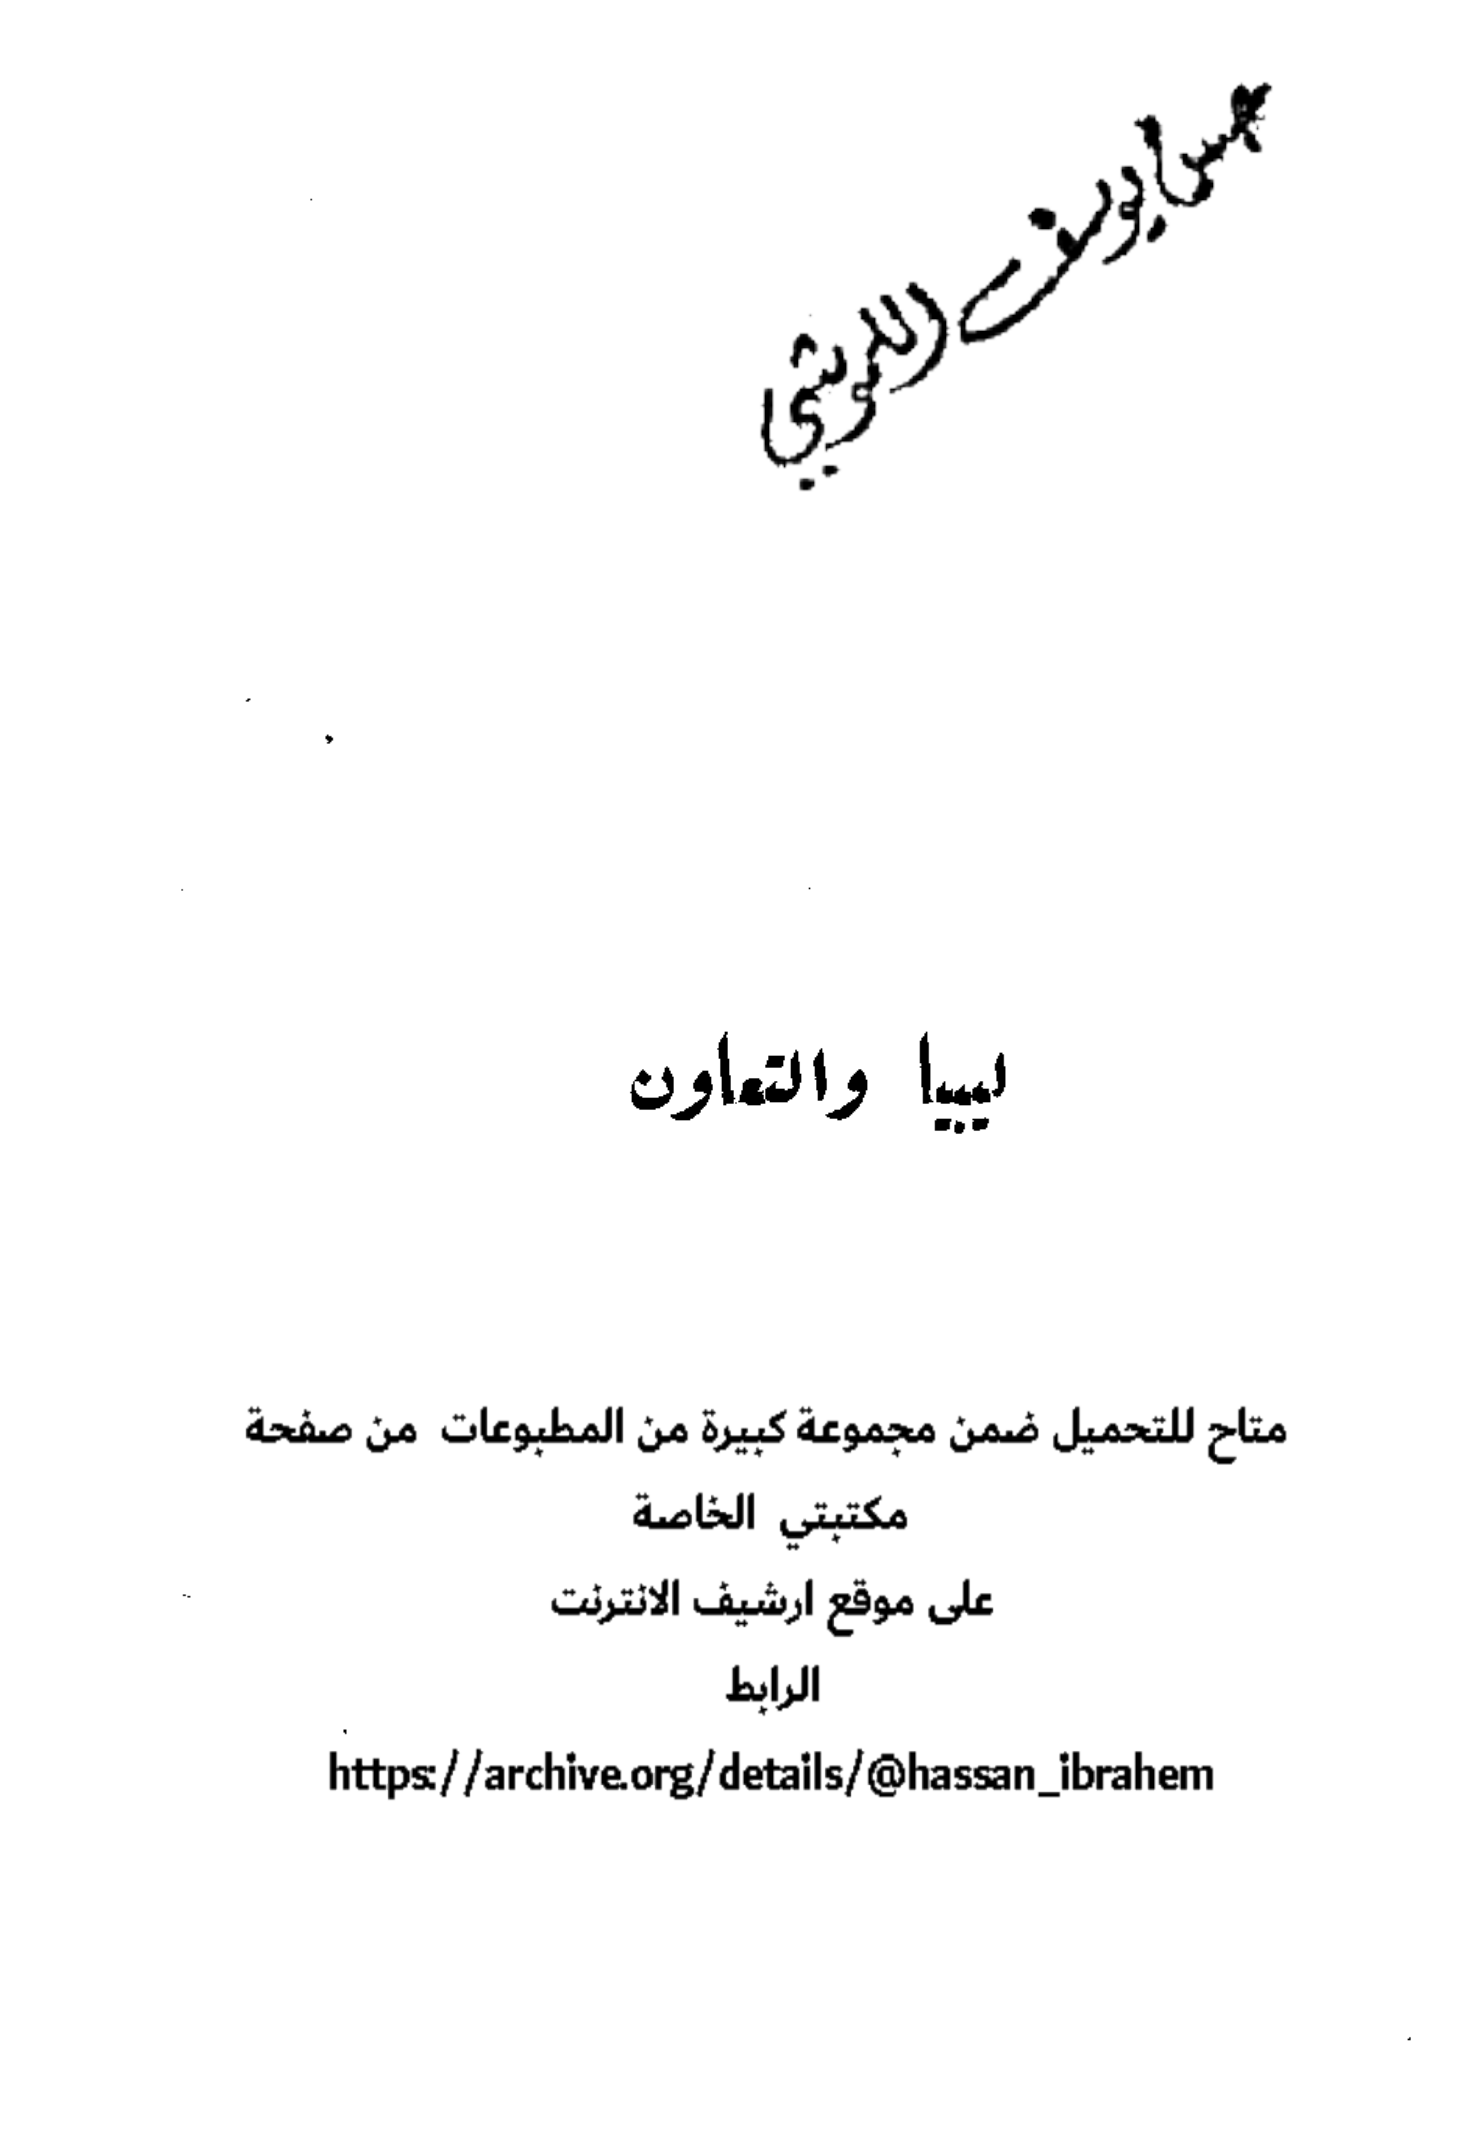 يوسف
ليبيا والتعاون
متاح للتحميل ضمن مجموعة كبيرة من المطبوعات من صفحة
مكتبتي الخاصة
على موقع ارشيف الانترنت
الرابط
https://archive.org/details/@hassan_ibrahem